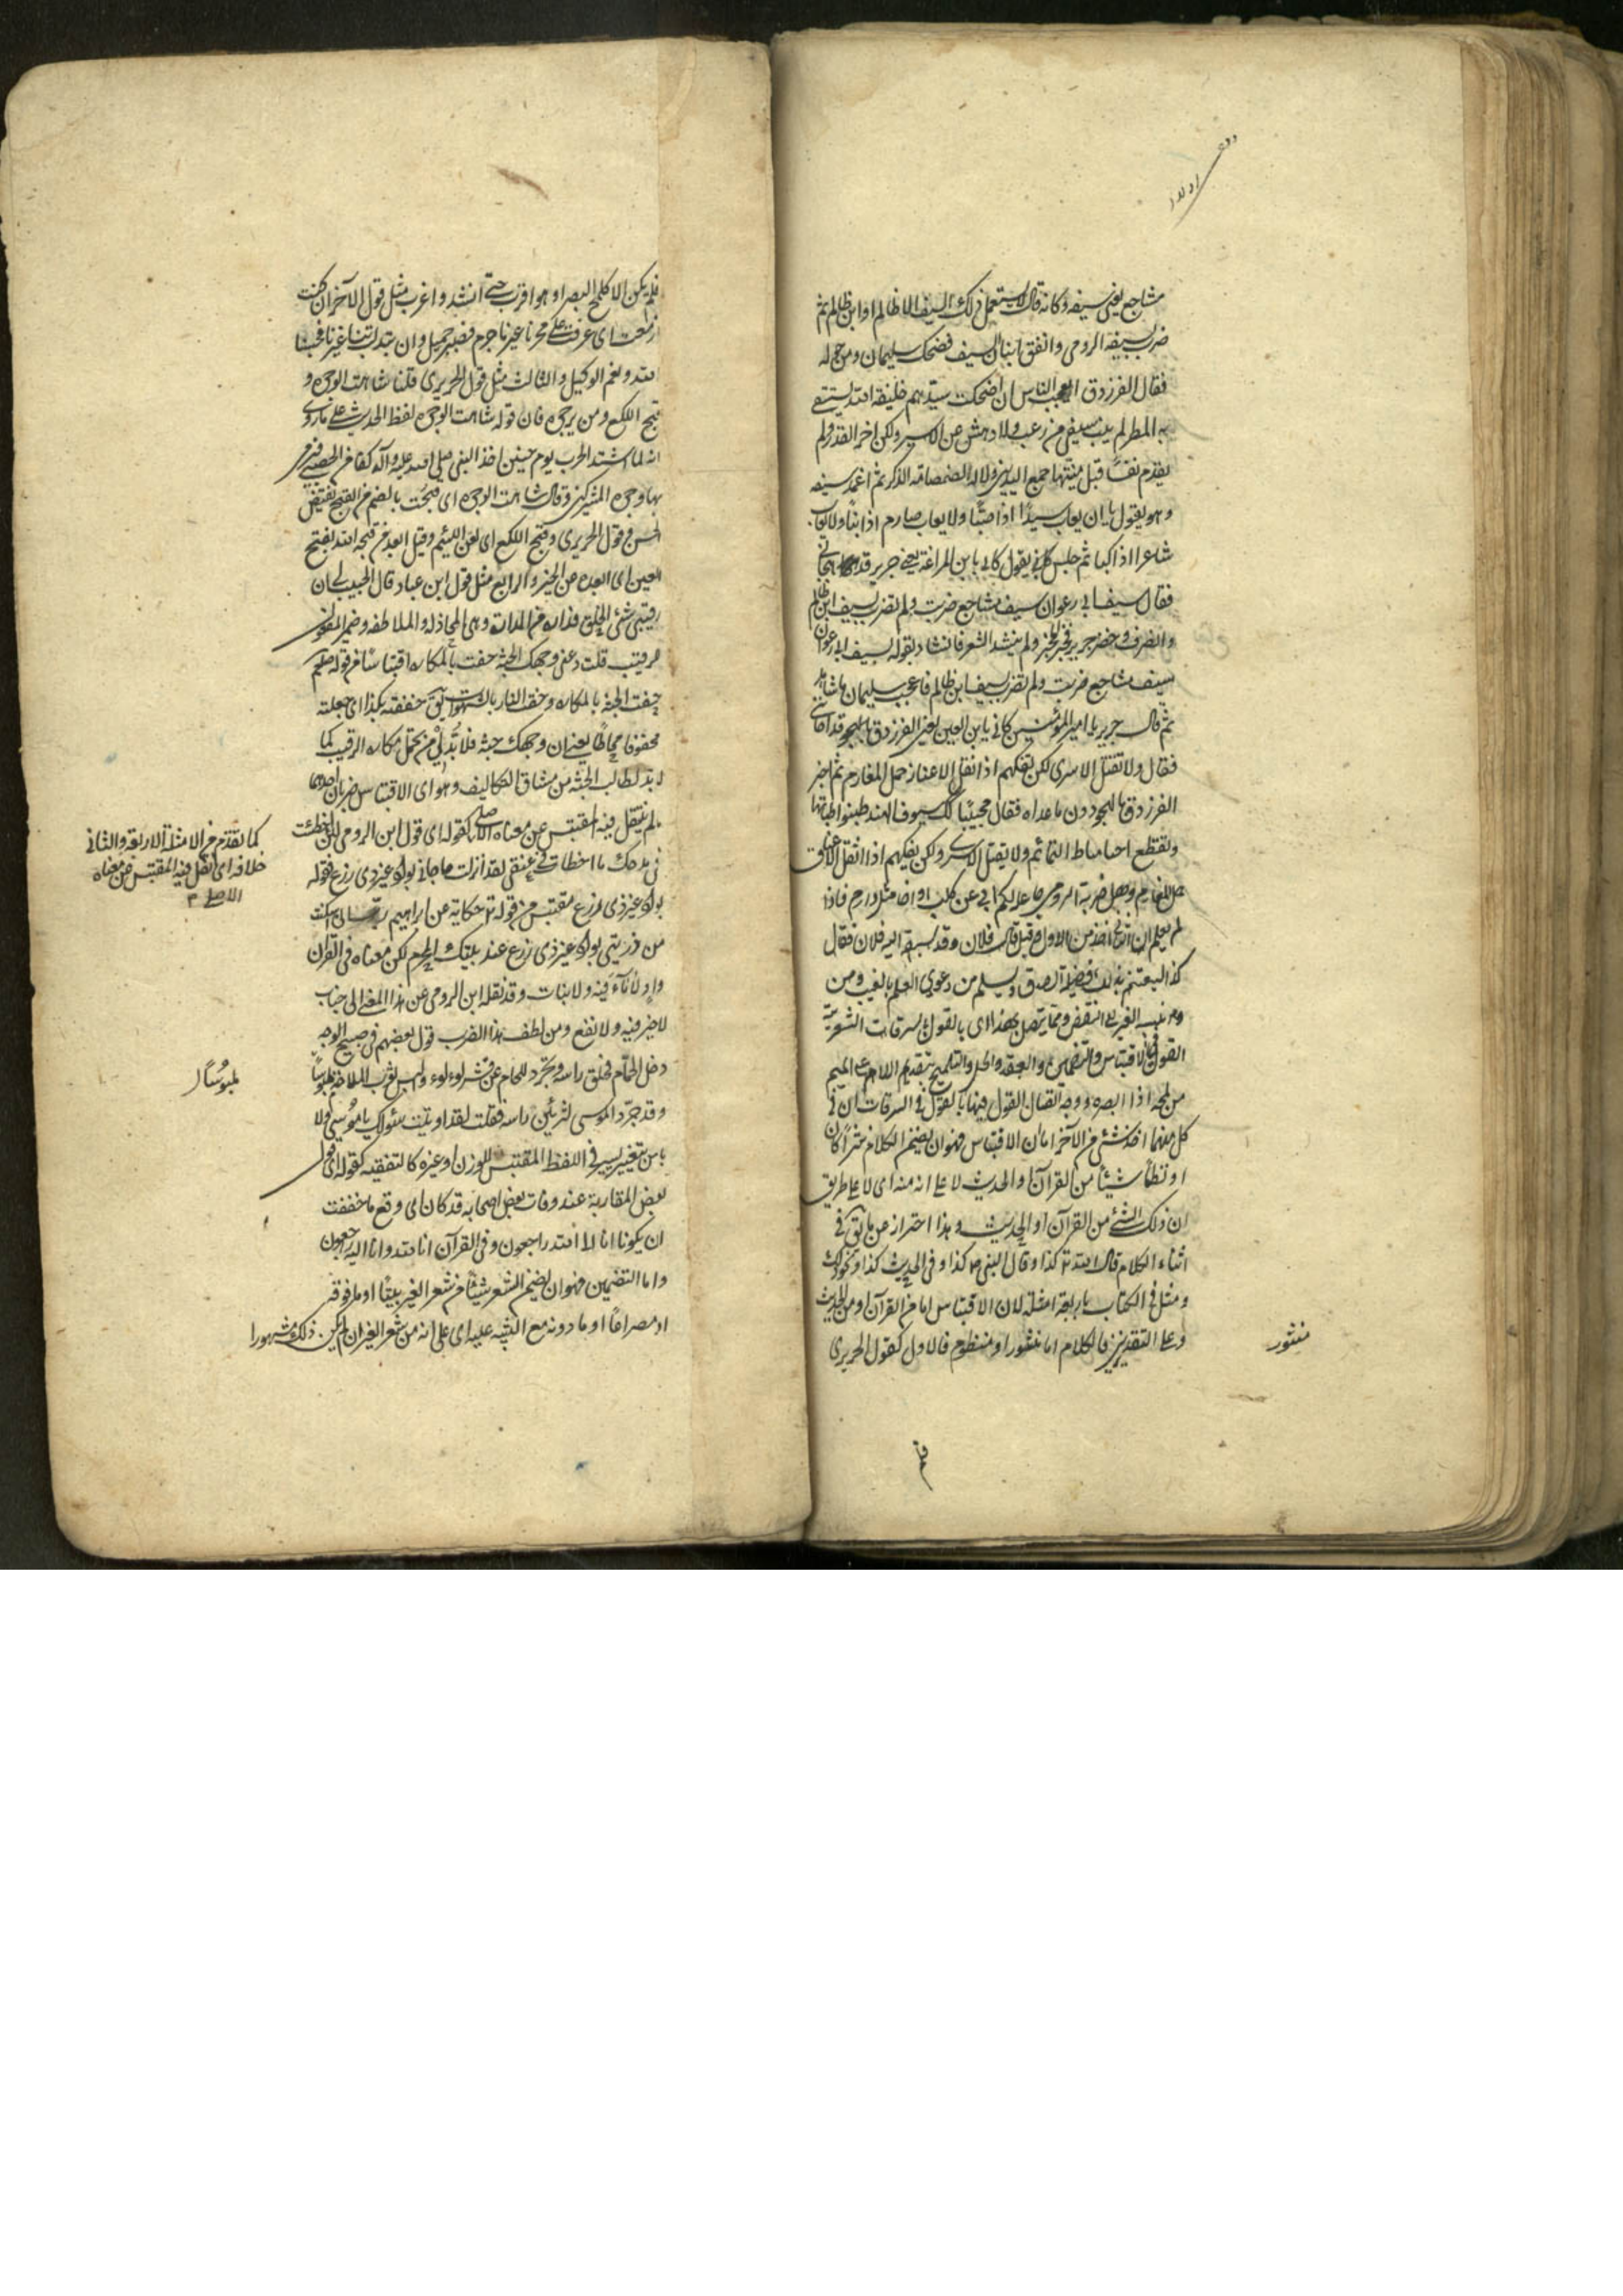 مشاجع يعنى سيفه وكانه قال لا يستعمل ذلك السيف الا ظالم او ابن ظالم ثم
ضرب بسيفه الرومى واتفق ان نبا السيف فضحك سليمان ومن حوله
فقال الفرزدق ايعجب الناس ان اضحكت سيدهم خليفة الله يستسقى
به المطر لم ينب سيفى من رعب ولا دهش عن الاسير ولكن اخر القدر ولم
يقدم نفسا قبل ميتتها جمع اليدين ولا الصمصامة الذكر ثم اغمد سيفه
وهو يقول ما ان يعاب سيد اذا صبا ولا يعاب صارم اذا نبا ولا يعاب
شاعرا اذا كبا ثم جلس يقول كانى بابن المراغة يعنى جرير قد هجانى
فقال بسيف ابى رغوان سيف مشاجع ضربت ولم تضرب بسيف ابن ظالم
وانصرف وحضر جرير فخبر الخبر ولم ينشد الشعر فانشاد بقوله بسيف ابى رغوان
سيف مشاجع ضربت ولم تضرب بسيف ابن ظالم فاعجب سليمان ما شاهد
ثم قال جرير يا امير المؤمنين كانى بابن القين يعنى الفرزدق قد اجابنى
فقال ولا نقتل الاسرى لكن نفكهم اذا اثقل الاعناق حمل المغارم ثم اخبر
الفرزدق بالهجو دون ما عداه فقال مجيبا كذاك سيوف الهند تنبو ظباتها
وتقطع احيانا مناط التمائم ولا نقتل الاسرى ولكن نفكهم اذا اثقل الاعناق
حمل المغارم وهل ضربة الرومى جاعلة لكم ابا عن كليب او اخا مثل دارم فاذا
لم يعلم ان الثانى اخذ من الاول قيل قال فلان وقد سبقه اليه فلان فقال
كذا ليغتنم بذلك فضيلة الصدق ويسلم من دعوى العلم بالغيب ومن
نسبة الغير الى النقص ومما يتصل بهذا اى بالقول فى السرقات الشعرية
القول فى الاقتباس والتضمين والعقد والحل والتلميح بتقديم اللام على الميم
من لمحه اذا ابصره ووجه اتصال القول فيها بالقول فى السرقات ان فى
كل منهما اخذ شئ من الآخر اما الاقتباس فهو ان يضمن الكلام نثرا كان
او نظما شيئا من القرآن او الحديث لا على انه منه اى لا على طريق
ان ذلك الشئ من القرآن او الحديث وهذا احتراز عن ما يق فى
اثناء الكلام قال الله تع كذا وقال النبى ص كذا وفى الحديث كذا ونحو ذلك
ومثل فى الكتاب باربعة امثلة لان الاقتباس اما من القرآن او من الحديث
وعلى التقديرين فالكلام اما منثور او منظوم فالاول كقول الحريرى
منثور
فلم
فلم يكن الا كلمح البصر او هو اقرب حتى انشد واغرب مثل قول الآخر ان كنت
ازمعت اى عزمت على هجرنا من غير ما جرم فصبر جميل وان تبدلت بنا غيرنا فحسبنا
الله ونعم الوكيل والثالث مثل قول الحريرى قلنا شاهت الوجوه و
قبح اللكع ومن يرجوه فان قوله شاهت الوجوه لفظ الحديث على ما روى
انه لما اشتد الحرب يوم حنين اخذ النبى صلى الله عليه وآله كفا من الحصباء فرمى
بها وجوه المشركين وقال شاهت الوجوه اى قبحت بالضم من القبح نقيض
الحسن وقول الحريرى وقبح اللكع اى لعن اللئيم وقيل العبد من قبحه الله بفتح
العين اى ابعده عن الخير والرابع مثل قول ابن عباد قال الحبيب لى ان
رقيبى سئ الخلق فداره من المدارات وهى المجاذلة والملاطفة وضمير المفعول
للرقيب قلت دعنى وجهك الجنة حفت بالمكاره اقتباسا من قوله صلعم
حفت الجنة بالمكاره وحفت النار بالشهوات يق حففته بكذا اى جعلته
محفوفا محاطا يعنى ان وجهك جنة فلا بد لى من تحمل مكاره الرقيب كما
لا بد لطالب الجنة من مشاق التكاليف وهو اى الاقتباس ضربان احدهما
ما لم ينتقل فيه المقتبس عن معناه الاصلى كقوله اى قول ابن الرومى لئن اخطئت
فى مدحك ما اخطات فى منعى لقد انزلت حاجاتى بواد غير ذى زرع فقوله
بواد غير ذى زرع مقتبس من قوله تع حكاية عن ابراهيم رب انى اسكنت
من ذريتى بواد غير ذى زرع عند بيتك المحرم لكن معناه فى القرآن
واد لا ماء فيه ولا نبات وقد نقله ابن الرومى عن هذا المعنى الى جناب
لا خير فيه ولا نفع ومن لطف هذا الضرب قول بعضهم فى صبيح الوجه
دخل الحمام فحلق راسه وتجرد للحمام عن قشر لؤلؤ والبس ثوب الملاحة ملبوسا
وقد جرد الموسى لتزيين راسه فقلت لقد اوتيت سؤلك يا موسى ولا
باس بتغيير يسير فى اللفظ المقتبس للوزن او غيره كالتقفية كقوله اى قول
بعض المغاربة عند وفات بعض اصحابه قد كان اى وقع ما خففت
ان يكونا انا الى الله راجعون وفى القرآن انا لله وانا اليه راجعون
واما التضمين فهو ان يضمن الشعر شيئا من شعر الغير بيتا او ما فوقه
او مصراعا او ما دونه مع التنبيه عليه اى على انه من شعر الغير ان لم يكن ذلك مشهورا
كما تقدم من الامثلة الاربعة والثانى
خلافه اى نقل فيه المقتبس عن معناه
الاصلى
ملبوسا